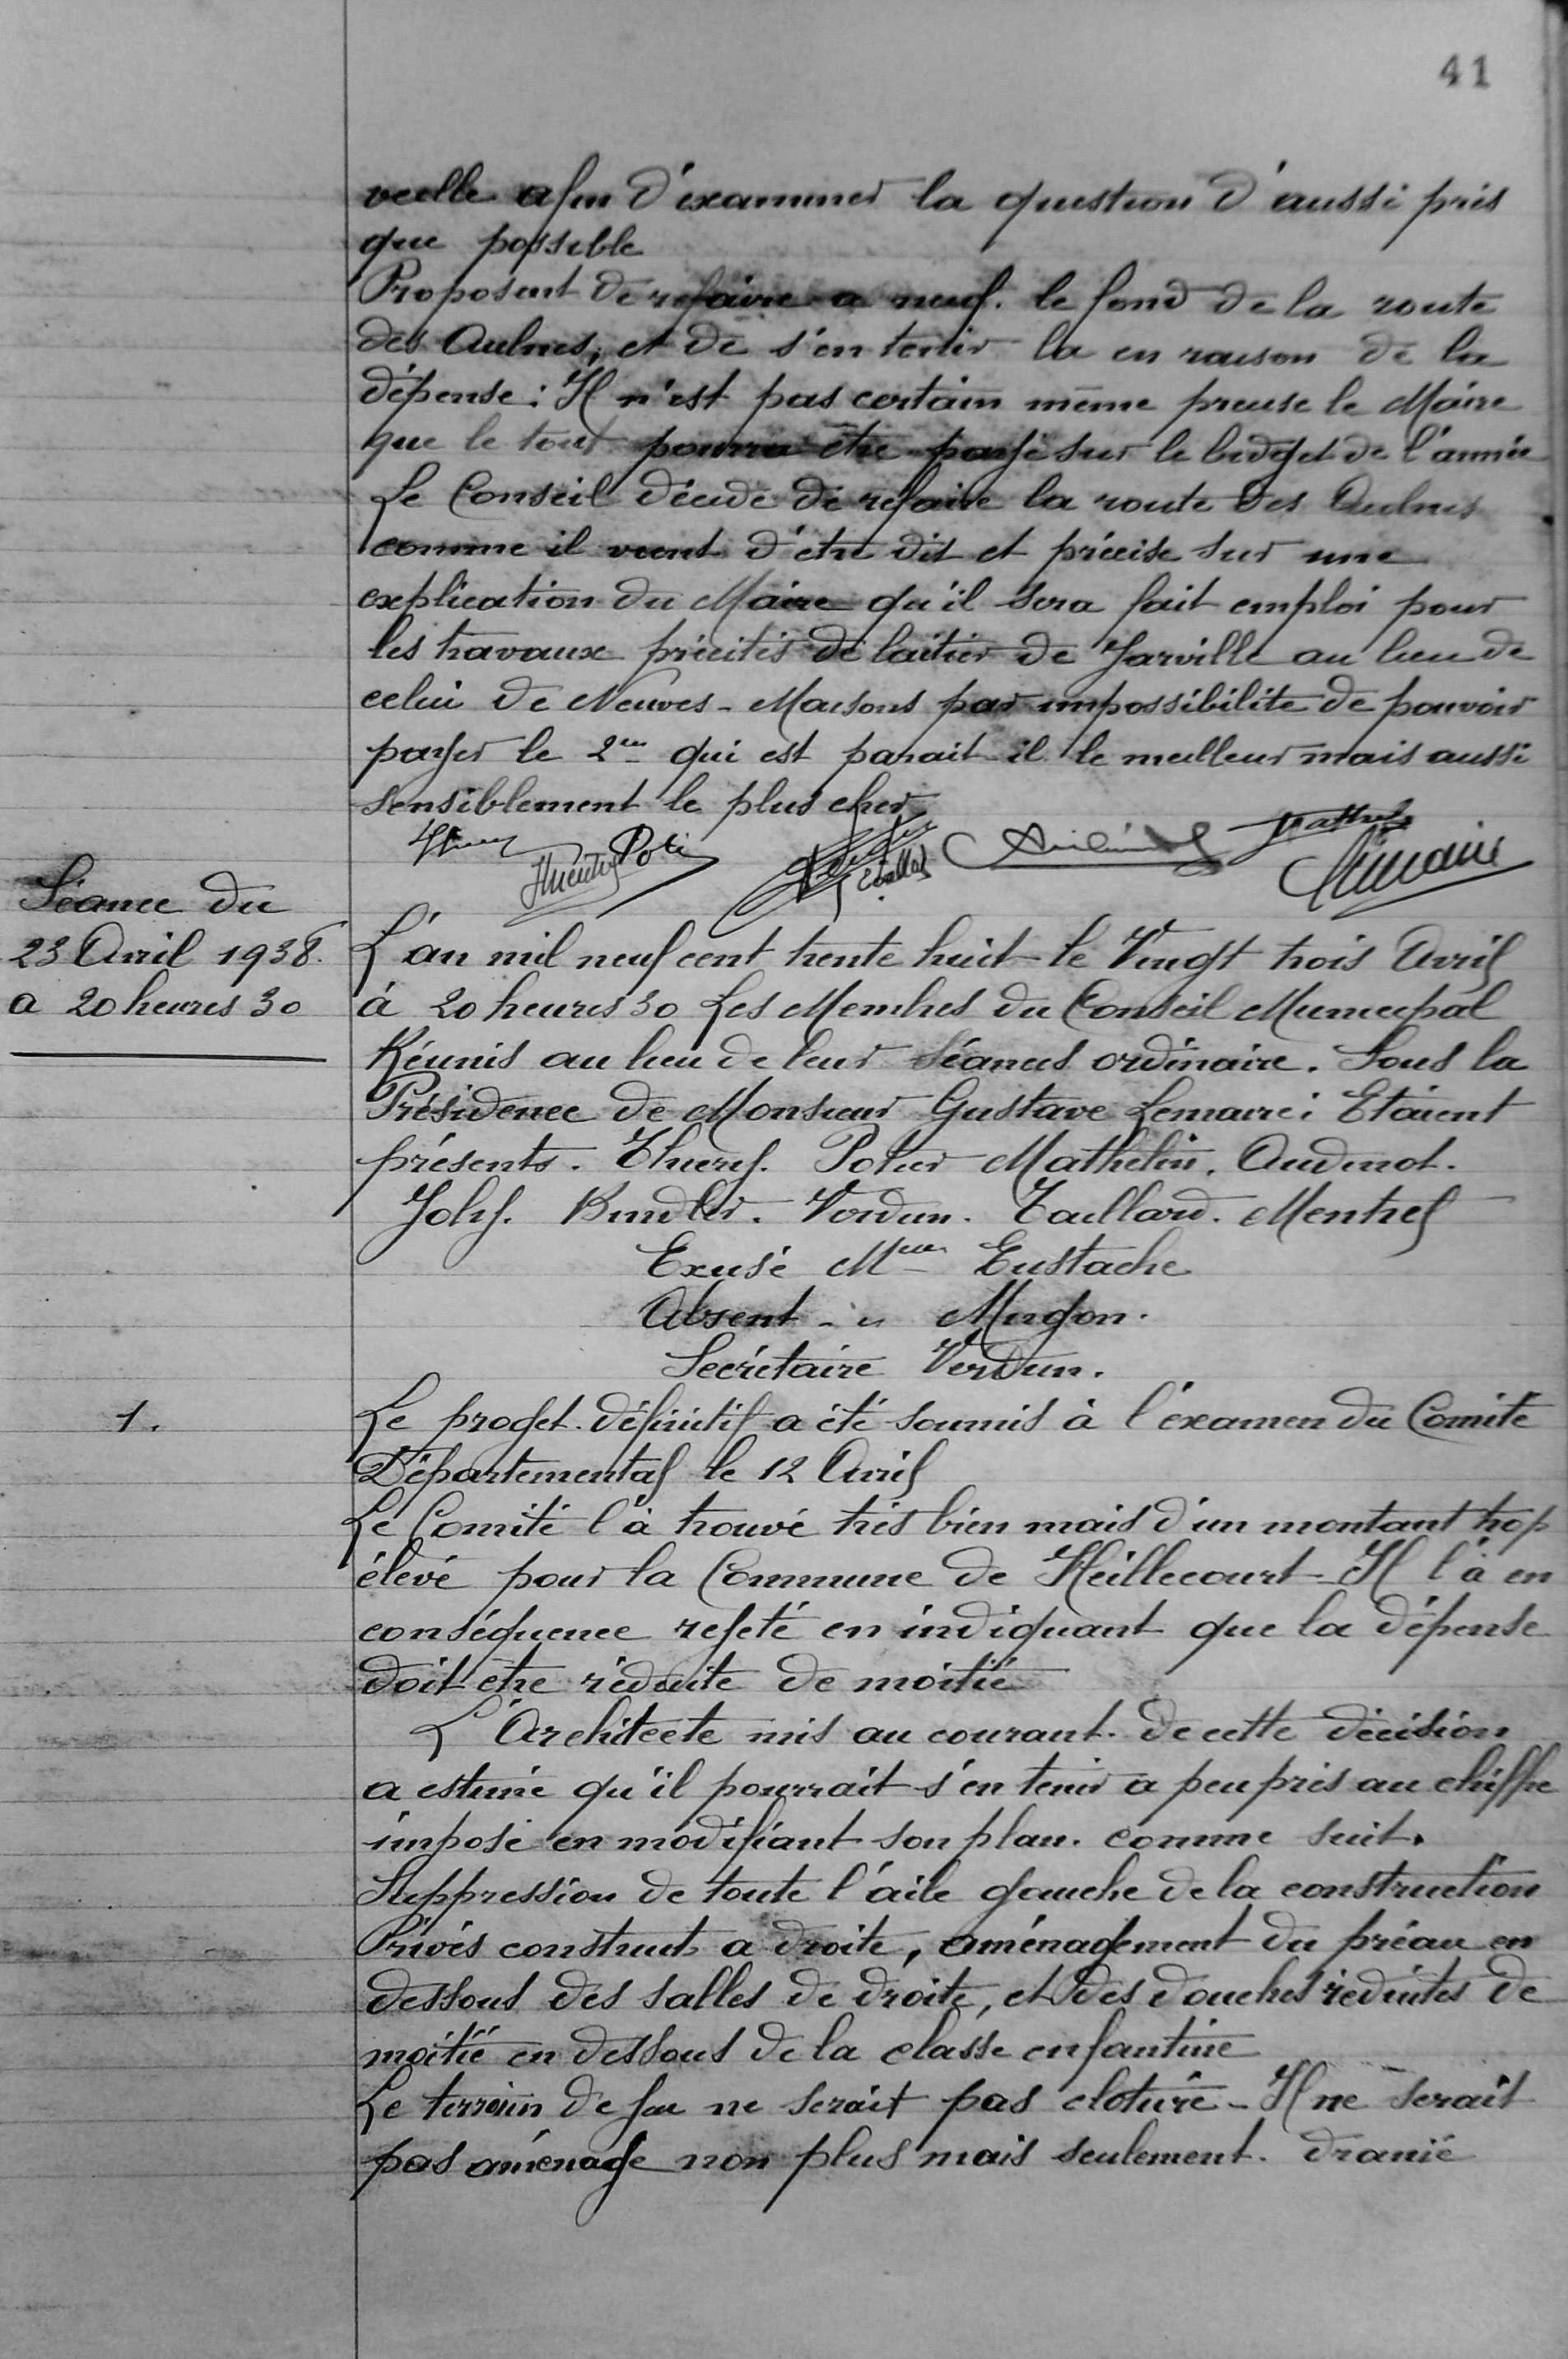 41
veille afin d'examiner la question d'aussi près
que possible
Proposent de refaire a neuf. le fond de la route
des Aulnes, et de s'en tenir la en raison de la
dépense : Il n'est pas certain même precise le Maire
que le tout pourra être payé sur le budget de l'année
Le Conseil décide de refaire la route des Aulnes
comme il vient d'être dit et précise sur une
explication du Maire qu'il sera fait emploi pour
les travaux précités de laitier de Jarville au lieu de
celui de Neuves-Maisons par impossibilite de pouvoir
payer le 2em qui est parait-il le meilleur mais aussi
sensiblement le plus cher
Séance du
23 Avril 1938.
a 20 heures 30
L'an mil neuf cent trente huit le Vingt trois Avril
à 20 heures 30 Les Membres du Conseil Municipal
Réunis au lieu de leur Séances ordinaire. Sous la
Présidence de Monsieur Gustave Lemaire : Etaient
présents. Thiery. Potier Mathelin. Audinot.
Joly. Kindler. Verdun. Taillard. Mentrel
Exusé Mr Eustache
Absent - " Mugon.
Secrétaire Verdun.
1.
Le projet définitif a été soumis à l'examen du Comité
Départemental le 12 Avril
Le Comité l'à trouvé très bien mais d'un montant trop
élevé pour la Commune de Heillecourt - Il l'à en
conséquence rejeté en indiquant que la dépense
doit être réduite de moitié
L'Architecte mis au courant. de cette décision
a estimé qu'il pourrait s'en tenir a peu près au chiffre
imposé en modifiant son plan. comme suit.
Suppression de toute l'aile gauche de la construction
Privés construit a droite, aménagement du préau en
dessous des salles de droite, et des douches réduites de
moitié en dessous de la classe enfantine
Le terrain de jeu ne serait pas cloturé - Il ne serait
pas aménagé non plus mais seulement. drainé